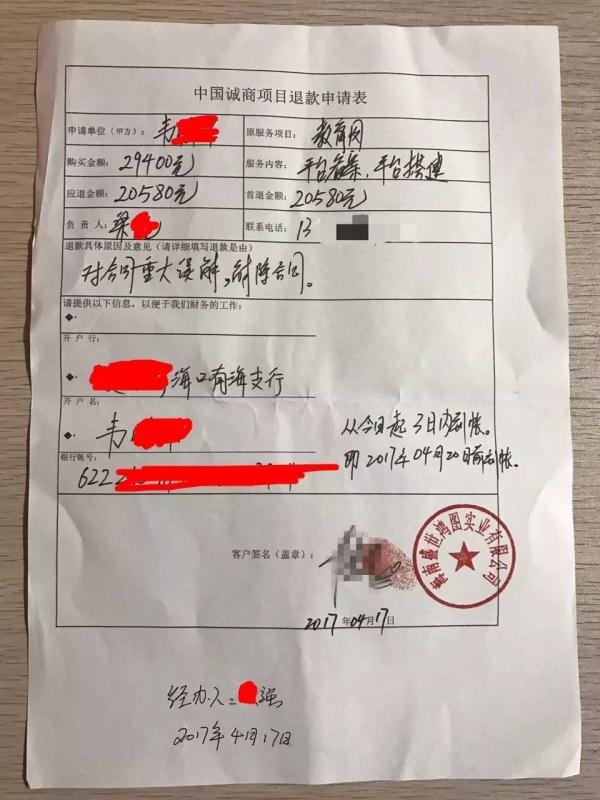 中国诚商项目退款申请表
申请单位(甲方)：韦
原服务项目：教育网
购买金额：29400元
服务内容：平台备案，平台搭建
应退金额：20580元
首退金额：20580元
负责人：梁
联系电话：13
退款具体原因及意见（请详细填写退款是由）
对合同重大误解，解除合同。
请提供以下信息，以便于我们财务的工作：
开户行：
海口南海支行
开户名：
韦
从今日起3日内到帐。
即2017年04月20日前到帐。
银行帐号：
622
客户签名（盖章）：
海南盛世鸿图实业有限公司
2017年04月17日
经办人：强
2017年4月17日